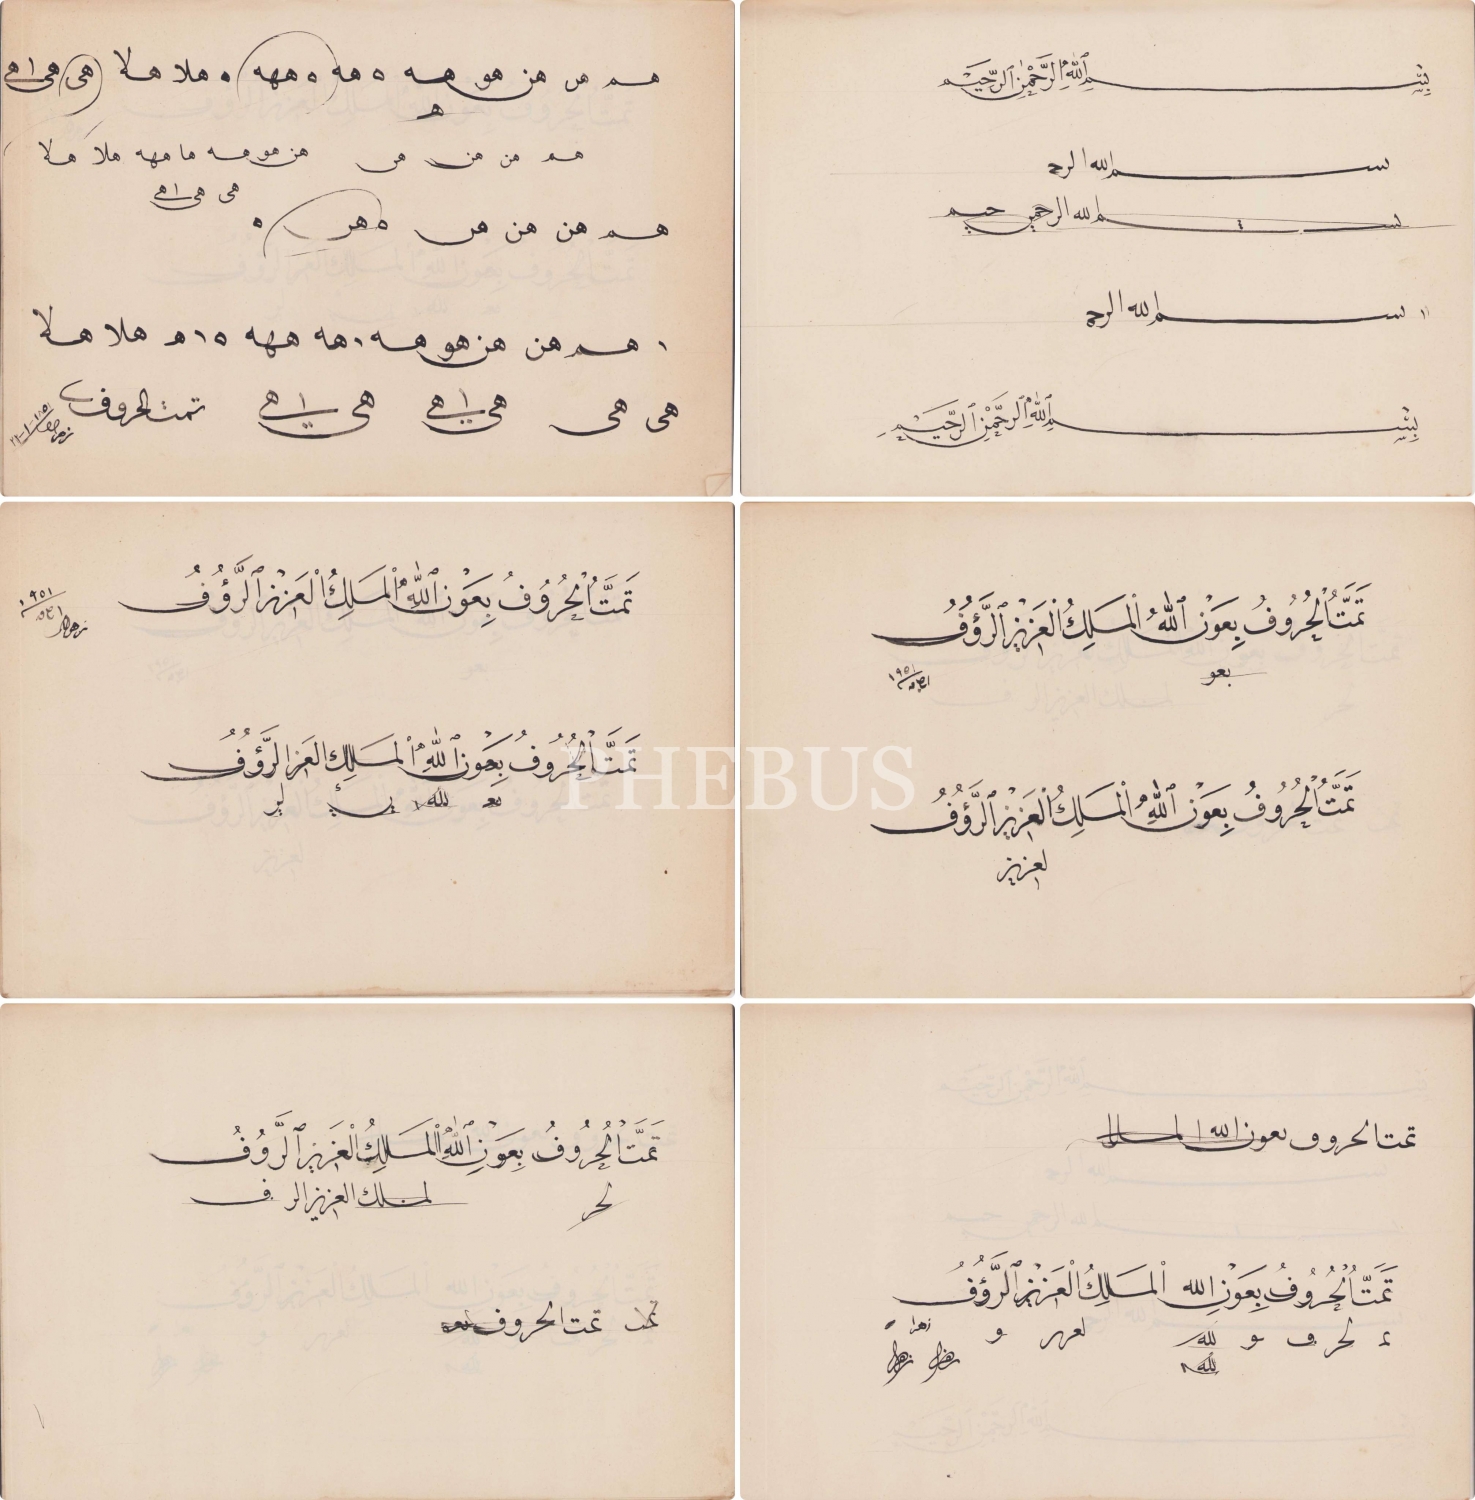 هم هں هن هو هه ه هه ه ههه ه هلا هلا هى هى ا هے
هم هن هن هں هن هو هه ها ههه هلا هلا
هى هى ا هے
هم هن هن هں ه هر ه
ا هم هن هن هو هه ا هه ههه ه ا ه هلا هلا
هى هى هى ا هے هى ا هے تمت الحروف
بِسْمِ اللهِ الرَّحْمٰنِ الرَّحِيْمِ
بسم الله الرح
بسم الله الرحمن حيم
بسم الله الرح
بِسْمِ اللهِ الرَّحْمٰنِ الرَّحِيْمِ
تَمَّتَّ الْحُرُوُفُ بِعَوْنِ اللهِ الْمَلِكُ الْعَزِيْزِ الرَّؤُوُفُ
١٩٥١
تَمَّتَّ الْحُرُوُفُ بِعَوْنِ اللهِ الْمَلِكِ الْعَزِيزِ الرَّؤُوُفُ
بعو لله لر
تَمَّتَّ الْحُرُوُفُ بِعَوْنِ اللهُ الْمَلِكُ الْعَزِيْزِ الرَّؤُوُفُ
بعو
١٩٥١
تَمَّتَّ الْحُرُوُفُ بِعَوْنِ اللهِ الْمَلِكُ الْعَزِيْزِ الرَّؤُوُفُ
لعزيز
تَمَّتَّ الْحُرُوُفُ بِعَوْنِ اللهُ الْمَلِكُ الْعَزِيْزِ الرَّوُفُ
لحر لملك العزيز الر ف
تمت تمت الحروف بعو
تمت الحروف بعون الله الملل
تَمَّتَّ الْحُرُوُفُ بِعَوْنِ الله الْمَلِكُ الْعَزِيْزِ الرَّؤُوُفُ
لحر ف و لله لعزيز و
لله
PHEBUS